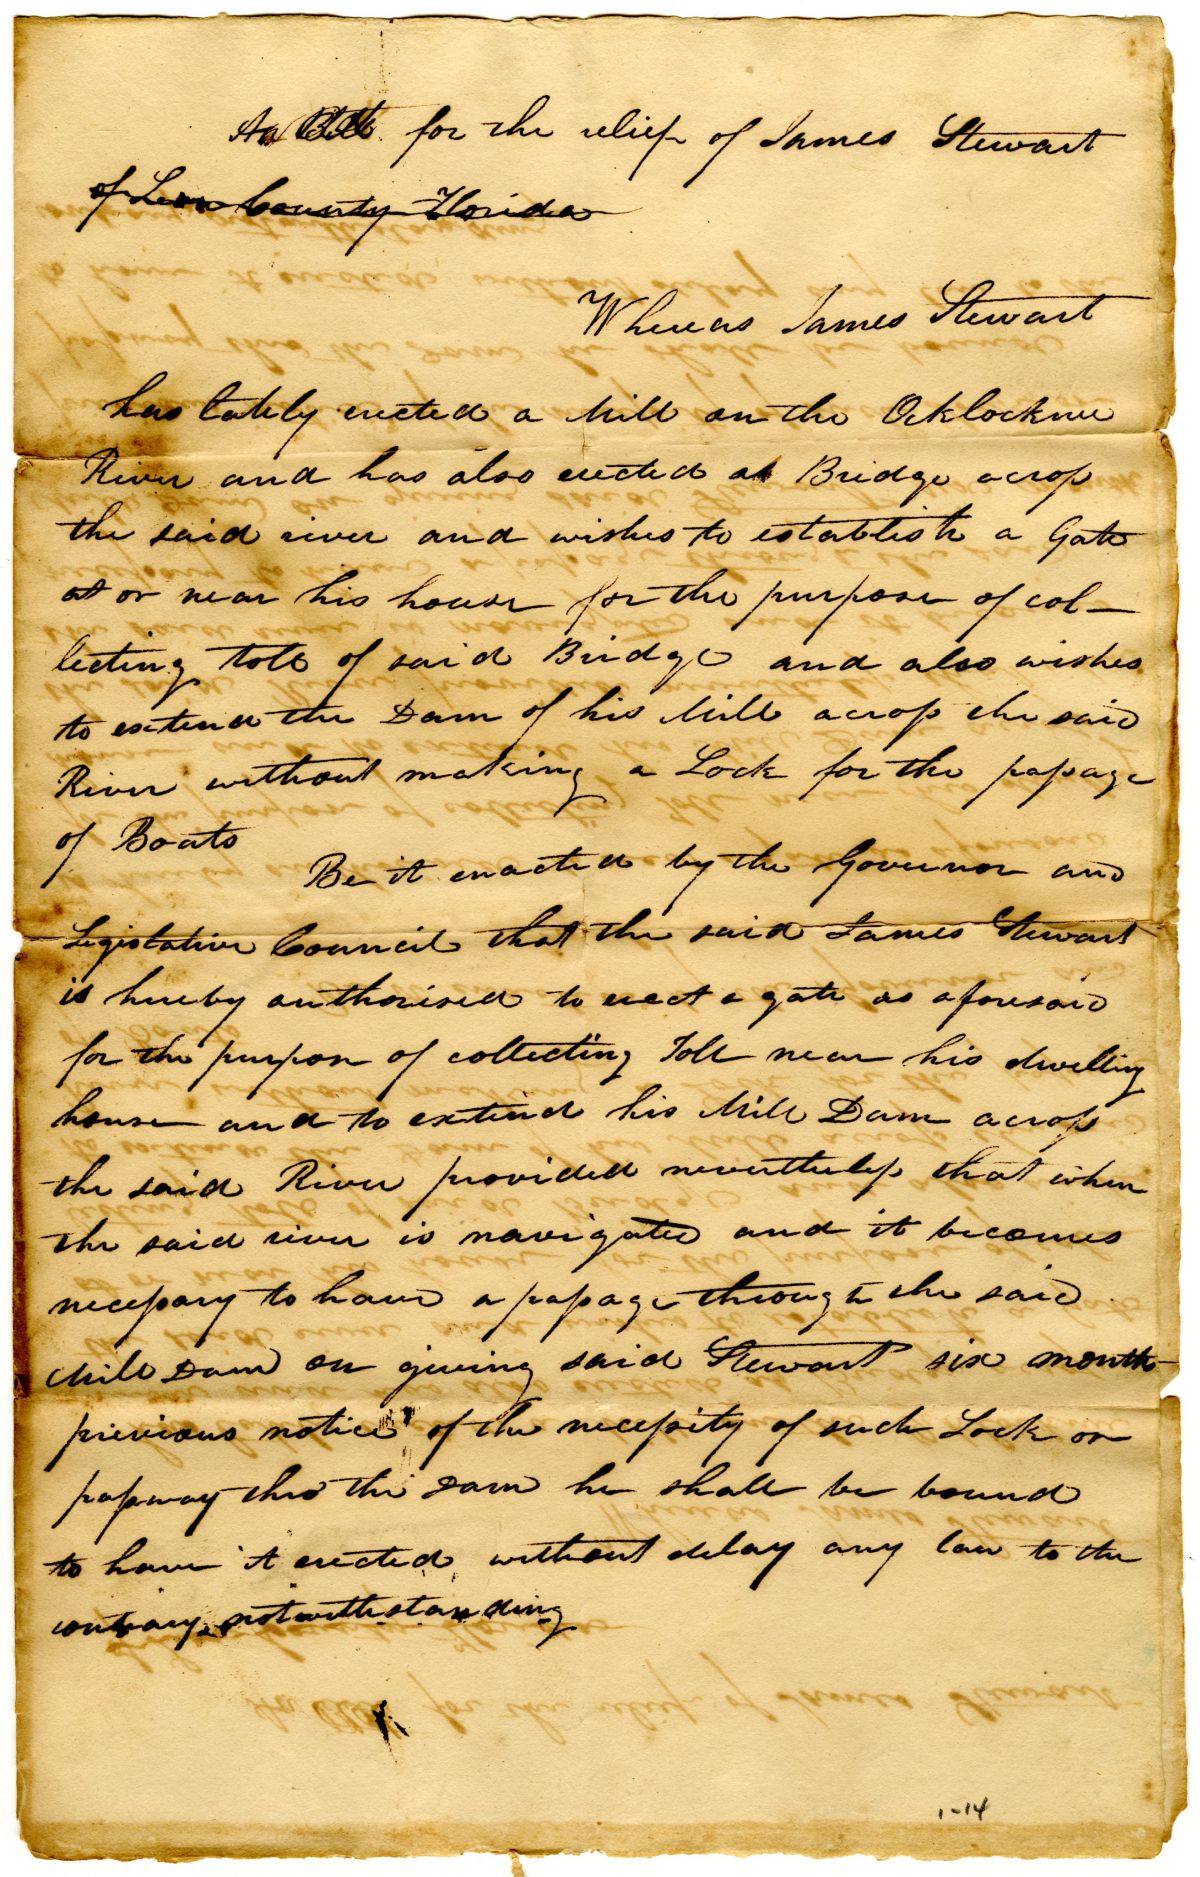 An Act for the relief of James Stewart
of Leon County Florida
Whereas James Stewart
has lately erected a Mill on the Ocklocknee
River and has also erected a Bridge across
the said river and wishes to establish a Gate
at or near his house for the purpose of col-
lecting toll of said Bridge and also wishes
to extend the Dam of his Mill across the said
River without making a Lock for the passage
of Boats
Be it enacted by the Governor and
Legislative Council that the said James Stewart
is hereby authorised to erect a gate as aforesaid
for the purpose of collecting Toll near his dwelling
house and to extend his Mill Dam across
the said River provided nevertheless that when
the said river is navigated and it becomes
necessary to have a passage through the said
Mill Dam on giving said Stewart six month
previous notice of the necessity of such Lock or
passway thro the Dam he shall be bound
to have it erected without delay any law to the
contrary notwithstanding
1-14